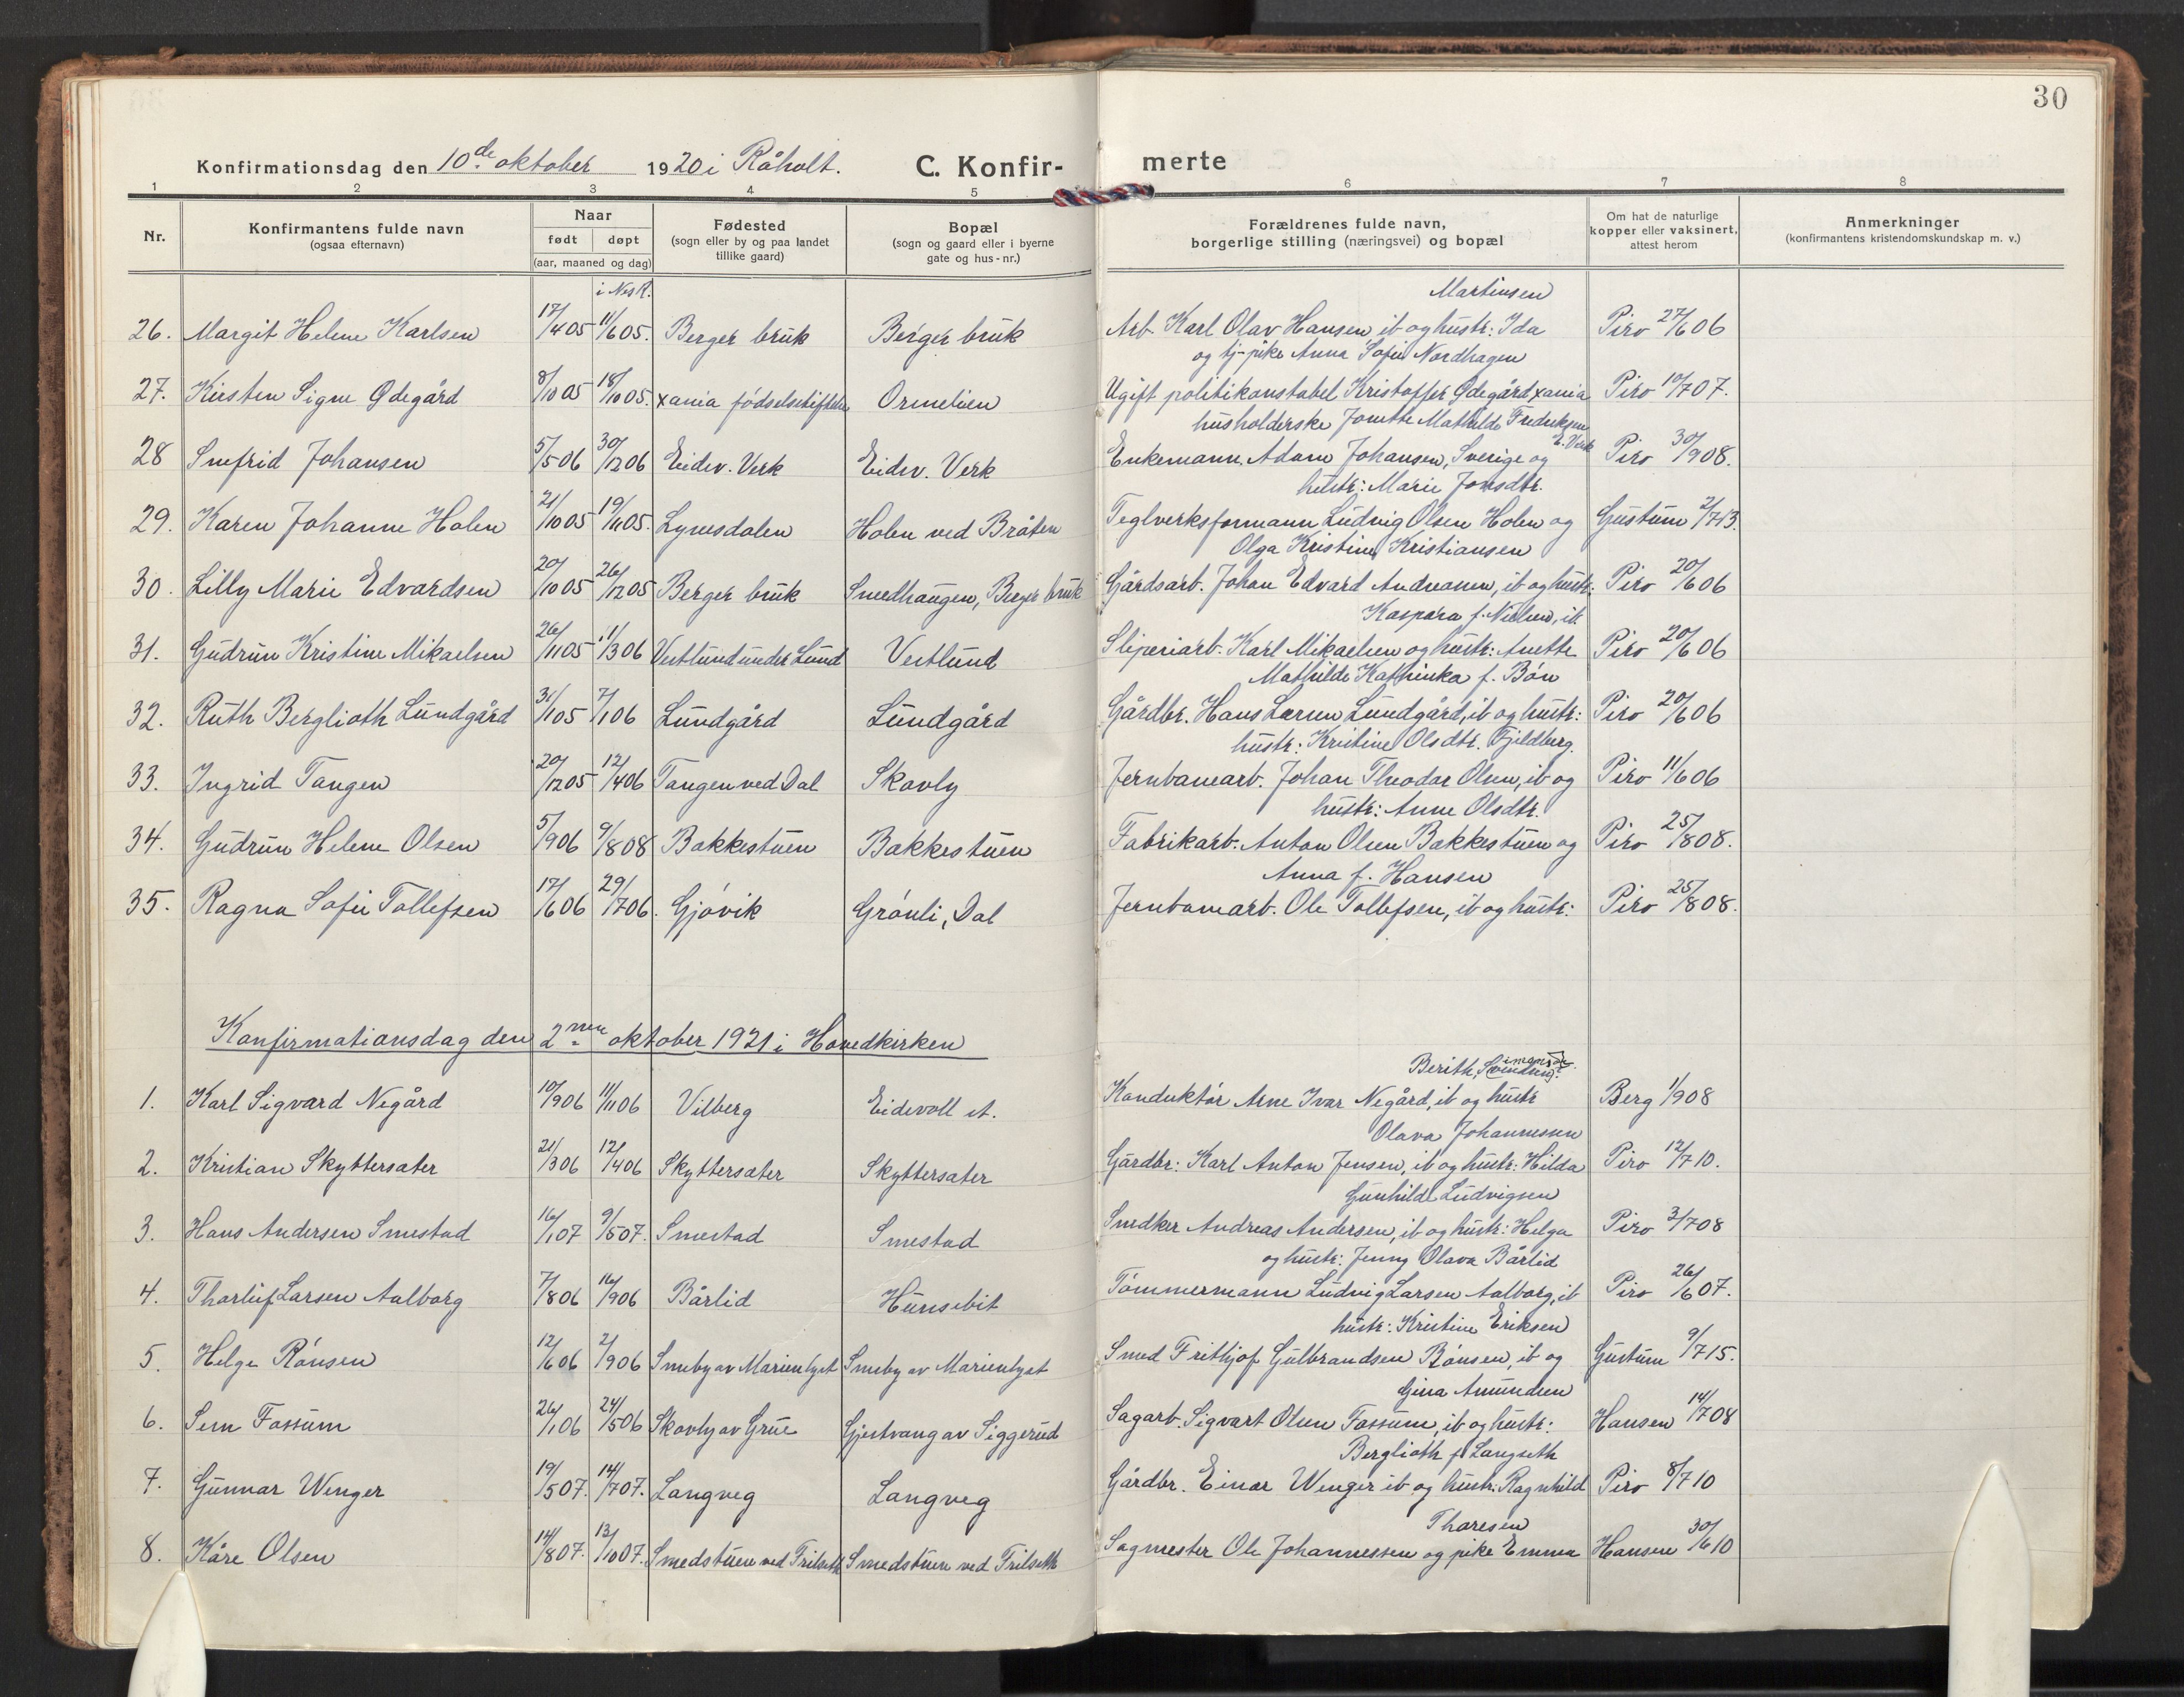 30
Konfirmationsdag den 10de oktober 1920 i Råholt. C. Konfirmerte
1 2 3 4 5 6 7 8
Nr.
Konfirmantens fulde navn
(ogsaa efternavn)
Naar
født døpt
(aar, maaned og dag)
Fødested
(sogn eller by og paa landet
tillike gaard)
Bopæl
(sogn og gaard eller i byerne
gate og hus-nr.)
Forældrenes fulde navn,
borgerlige stilling (næringsvei) og bopæl
Om hat de naturlige
kopper eller vaksinert,
attest herom
Anmerkninger
(konfirmantens kristendomskundskap m. v.)
i Nes K. Martinsen
26. Margit Helene Karlsen 17/4 05 11/6 05. Berger bruk Berger bruk Arb. Karl Olav Hansen, ib og hustr: Ida Piro 27/6 06
og tj-pike Anna Sofie Nordhagen
27. Kirsten Signe Ødegård 8/10 05 18/10 05. xania fødselsstiftelse Ormelien Ugift politikonstabel Kristoffer Ødegård xania Piro 10/7 07.
husholderske Jonette Mathilde Fredriksen E. Verk
28 Snefrid Johansen 5/5 06 30/12 06 Eidsv. Verk Eidsv. Verk Enkemann Adam Johansen, Sverige og Piro 30/9 08.
hustr: Marie Jonsdtr.
29. Karen Johanne Holen 21/10 05 19/11 05. Lynesdalen Holen ved Bråten Teglverksformann Ludvig Olsen Holen og Gustum 2/7 13.
Olga Kristine Kristiansen
30. Lilly Marie Edvardsen 20/10 05 26/12 05 Berger bruk Smedhaugen, Berger bruk Gårdsarb. Johan Edvard Andreasen, ib og hustr: Piro 20/6 06
Kaspara f. Nielsen, ib
31. Gudrun Kristine Mikaelsen 26/11 05 11/3 06 Vestlund under Lund Vestlund Sliperiarb. Karl Mikaelsen og hustr: Anette Piro 20/6 06
Mathilde Kathinka f. Bøn
32. Ruth Berglioth Lundgård 31/1 05 7/1 06 Lundgård Lundgård Gårdbr. Hans Larsen Lundgård, ib og hustr: Piro 20/6 06
hustr: Kristine Olsdtr. Fjeldberg.
33. Ingrid Tangen 20/12 05 12/4 06 Tangen ved Dal Skovly Jernbanearb. Johan Theodor Olsen, ib og Piro 11/6 06
hustr: Anne Olsdtr.
34. Gudrun Helene Olsen 5/9 06 9/8 08 Bakkestuen Bakkestuen Fabrikarb. Anton Olsen Bakkestuen og Piro 25/8 08.
Anna f. Hansen
35. Ragna Sofie Tollefsen 17/6 06 29/7 06. Gjøvik Grønli, Dal Jernbanearb. Ole Tollefsen, ib og hustr: Piro 25/8 08.
Konfirmationsdag den 2nen oktober 1921 i Hovedkirken
Berith
1. Karl Sigvard Negård 10/9 06 11/11 06 Vilberg Eidsvoll st. Konduktør Arne Ivar Negård, ib og hustr Berg 1/9 08
Olava Johannesen
2. Kristian Skyttersæter 21/3 06 12/4 06 Skyttersæter Skyttersæter Gårdbr: Karl Anton Jensen, ib og hustr: Hilda Piro 12/7 10.
Gunhild Ludvigsen
3. Hans Andersen Smestad 16/1 07 9/5 07. Smestad Smestad Snedker Andreas Andersen, ib og hustr: Helga Piro 3/7 08
og hustr: Jenny Olava Bårlid
4. Thorleif Larsen Aalborg 7/8 06 16/9 06 Bårlid Hunsebit Tømmermann Ludvig Larsen Aalborg, ib Piro 26/6 07.
hustr: Kristine Eriksen
5. Helge Rønsen 12/6 06 2/9 06 Smeby av Marienlyst Smeby av Marienlyst Smed Frithjof Gulbrandsen Rønsen, ib og Gustum 9/7 15.
Gina Amundsen
6. Sem Fossum 26/1 06 24/5 06 Skovly av Grue Gjestvang av Siggerud Sagarb. Sigvart Olsen Fossum, ib og hustr: Hansen 14/7 08
Berglioth f. Langseth
7. Gunnar Wenger 19/5 07. 14/7 07. Langveg Langveg Gårdbr. Einar Wenger ib og hustr: Ragnhild Piro 8/7 10
Thoresen
8. Kåre Olsen 14/8 07. 13/10 07. Smedstuen ved Trilseth Smedstuen ved Trilseth Sagmester Ole Johannessen og pike Emma Hansen 30/6 10